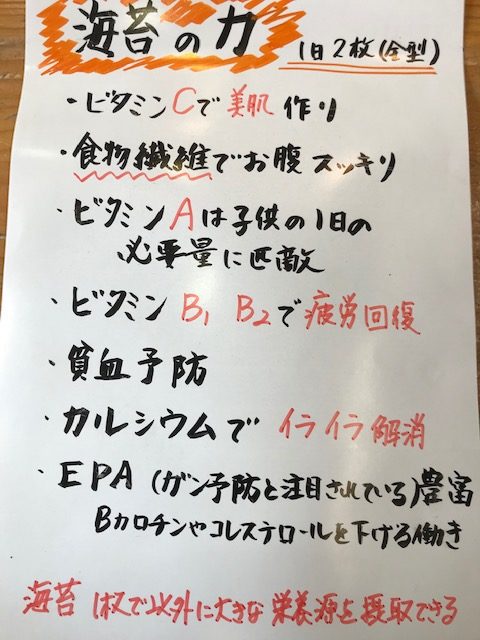 海苔の力
1日2枚(全型)
・ビタミンCで美肌作り
・食物繊維でお腹スッキリ
・ビタミンAは子供の1日の
必要量に匹敵
・ビタミンB1 B2で疲労回復
・貧血予防
・カルシウムでイライラ解消
・EPA(ガン予防と注目されている)豊富
Bカロチンやコレステロールを下げる働き
海苔1枚で以外に大きな栄養源を摂取できる